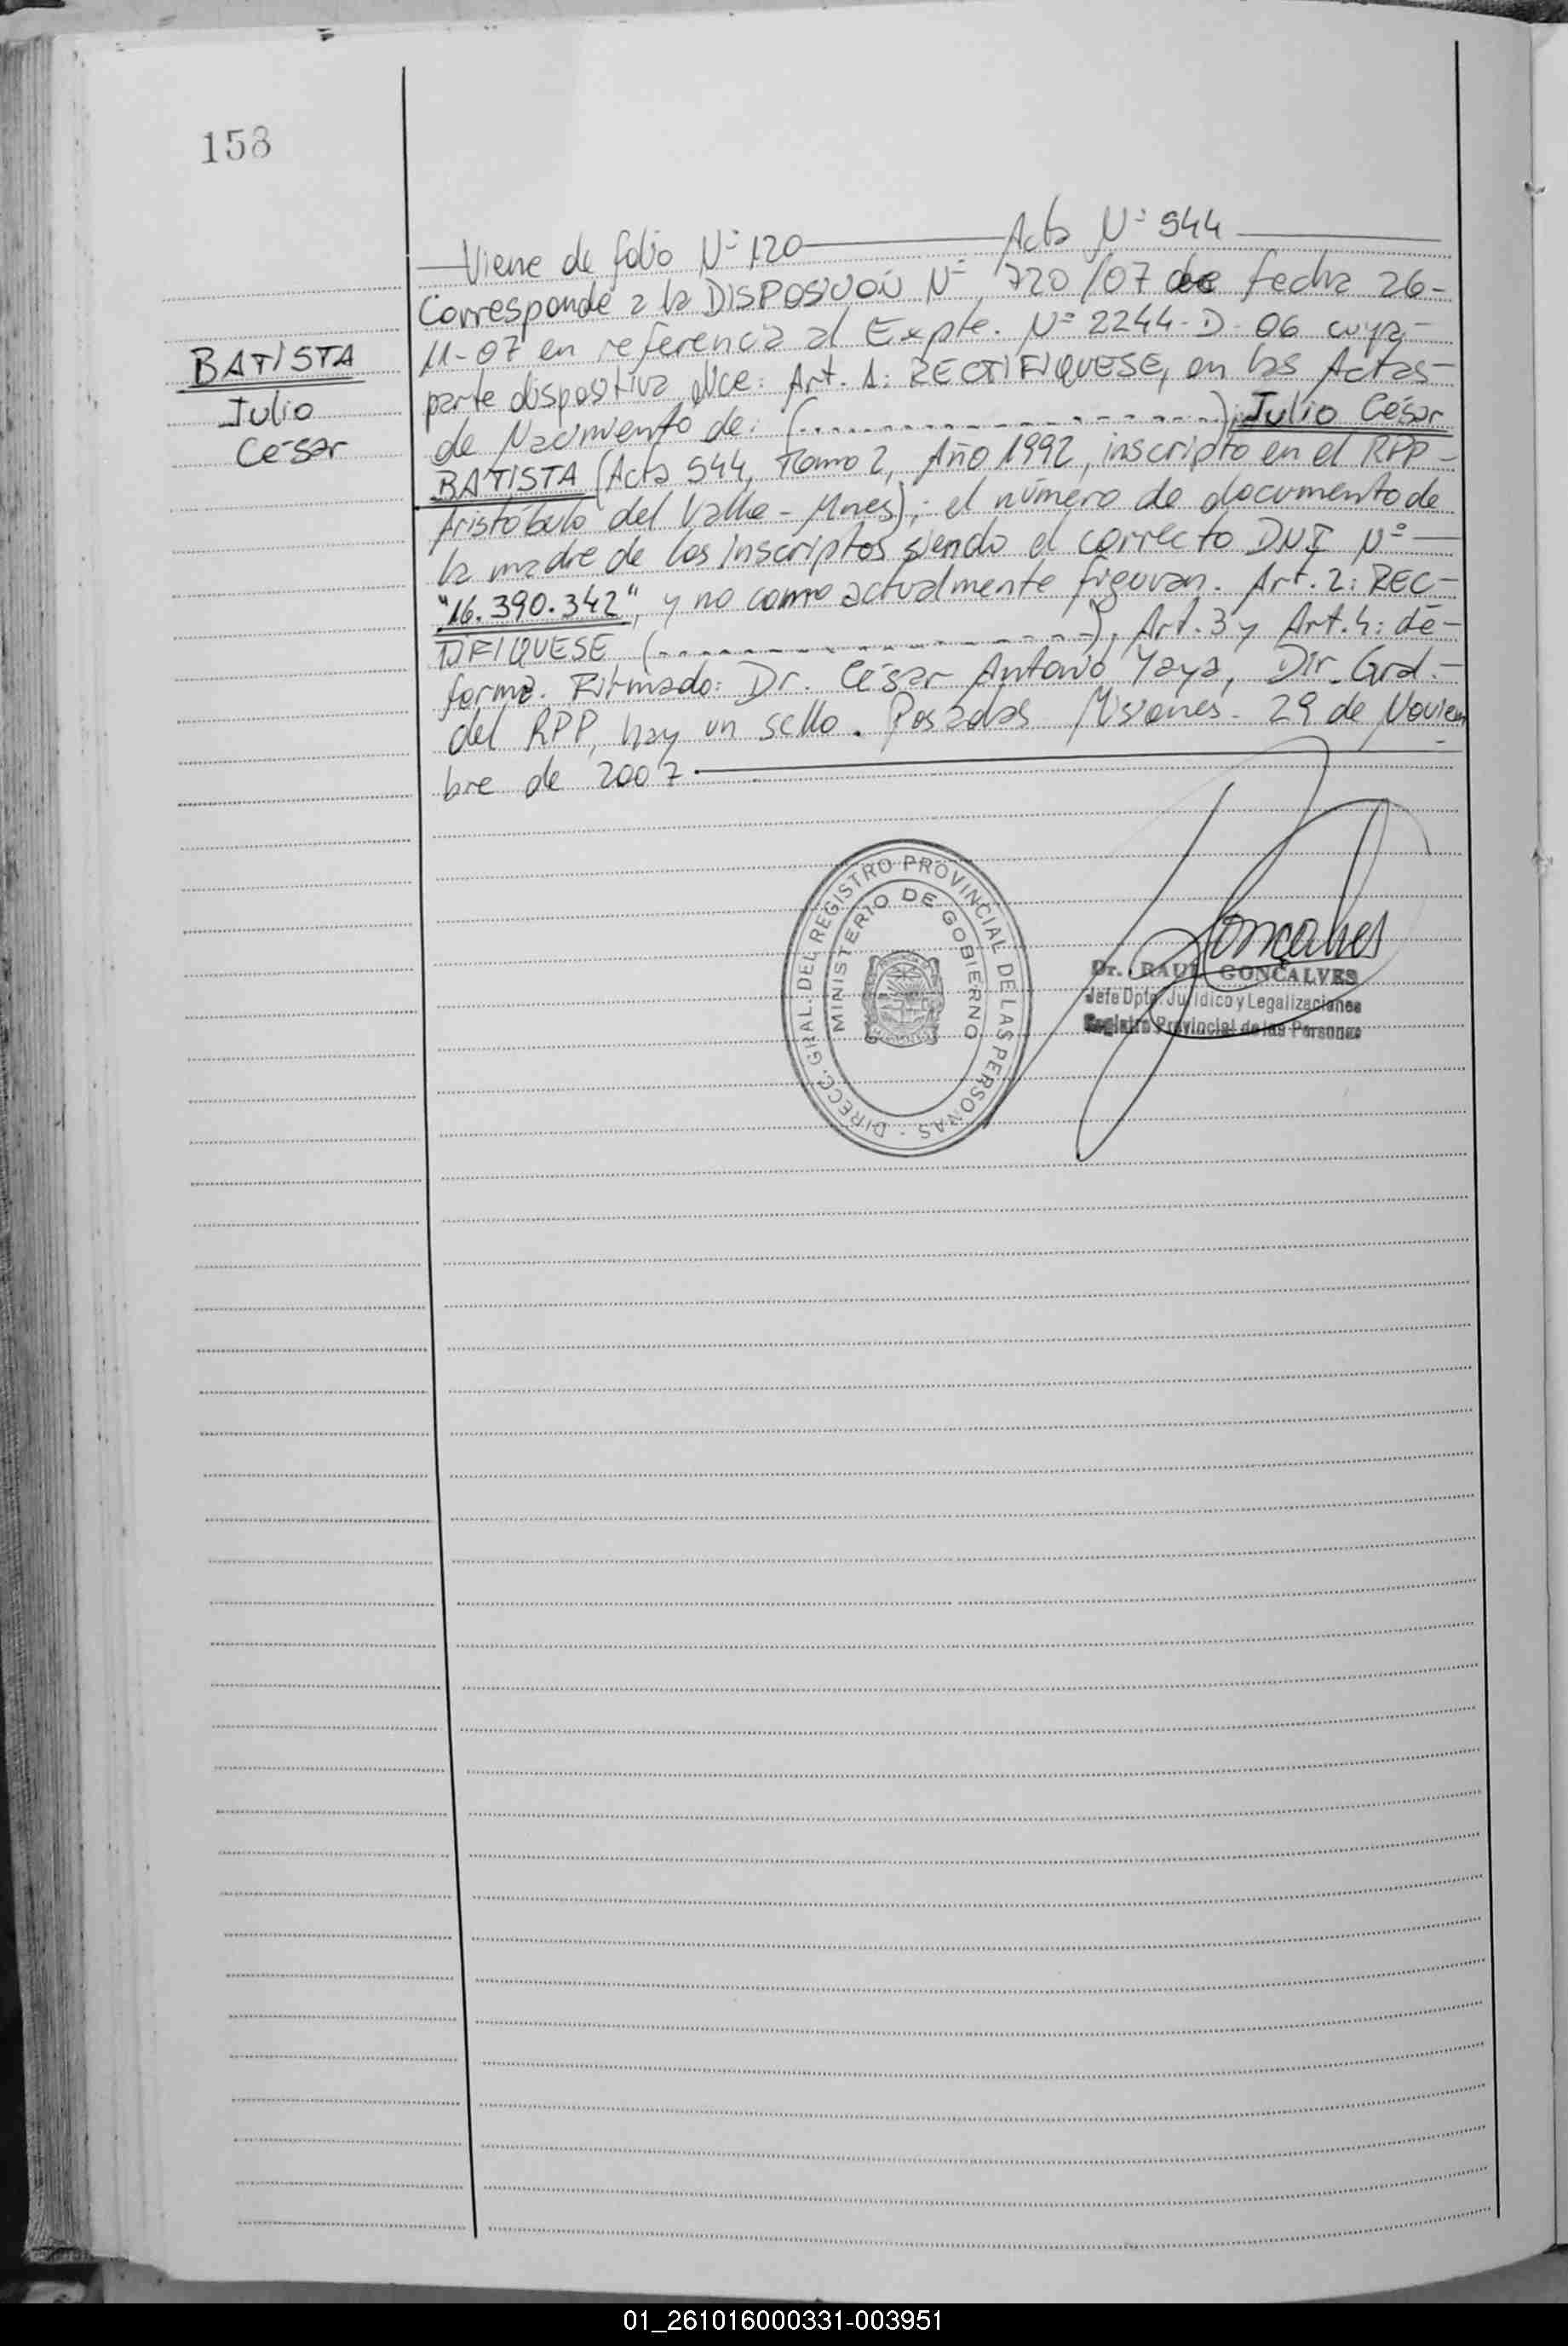 158
BATISTA
Julio
César
Viene de folio Nº 120 Acta Nº 944
Corresponde a la DISPOSICIÓN Nº 720/07 de fecha 26-
11-07 en referencia al Expte. Nº 2244-D-06 cuya-
parte dispositiva dice: Art. 1: RECTIFIQUESE, en las Actas-
de Nacimiento de: (--------------------); Julio César
BATISTA (Acta 944, Tomo 2, Año 1992, inscripto en el RPP-
Aristóbulo del Valle - Mnes); el número de documento de
la madre de los inscriptos siendo el correcto DNI Nº-
"16.390.342", y no como actualmente figuran. Art. 2: REC-
TIFIQUESE (--------------------), Art. 3 y Art. 4: de-
forma. Firmado: Dr. César Antonio Yaya, Dir. Gral.-
del RPP, hay un sello. Posadas Misiones. 29 de Noviem
bre de 2007
DIRECC. GRAL. DEL REGISTRO PROVINCIAL DE LAS PERSONAS -
MINISTERIO DE GOBIERNO
Gonçalves
Dr. RAUL GONÇALVES
Jefe Dpto. Jurídico y Legalizaciones
Registro Provincial de las Personas
01_261016000331-003951